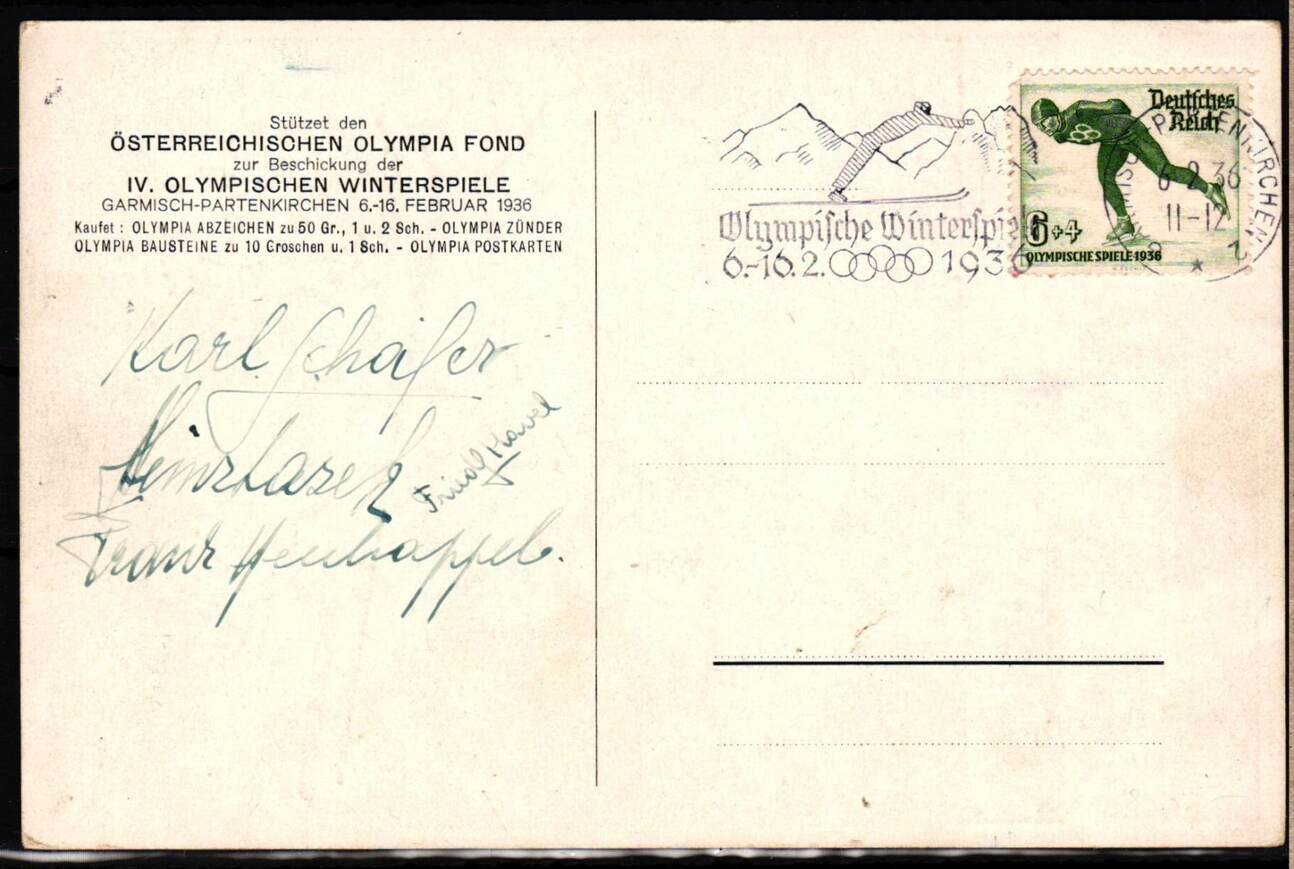 Stützet den
ÖSTERREICHISCHEN OLYMPIA FOND
zur Beschickung der
IV. OLYMPISCHEN WINTERSPIELE
GARMISCH-PARTENKIRCHEN 6.-16. FEBRUAR 1936
Kaufet : OLYMPIA ABZEICHEN zu 50 Gr., 1 u. 2 Sch. - OLYMPIA ZÜNDER
OLYMPIA BAUSTEINE zu 10 Groschen u. 1 Sch. - OLYMPIA POSTKARTEN
Karl Schäfer
Franz
Olympische Winterspie
6.-16.2. 1936
Deutsches
Reich
6+4
OLYMPISCHE SPIELE 1936
6.2.36
11-12